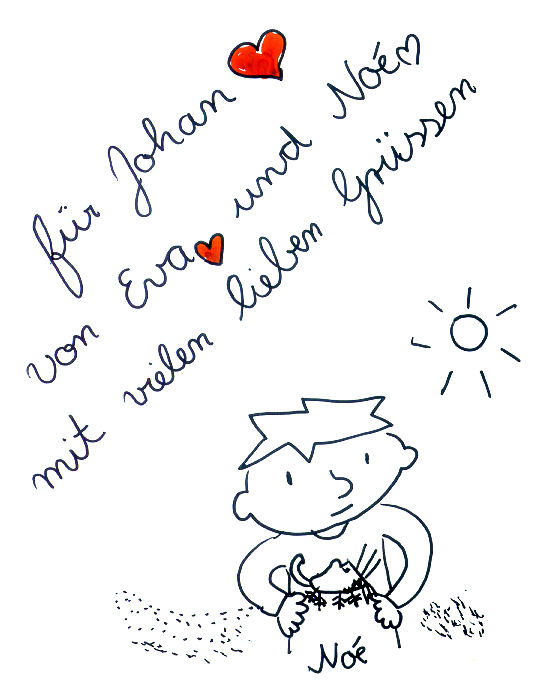 für Johan
von Eva und Noé
mit vielen lieben Grüssen
Noé